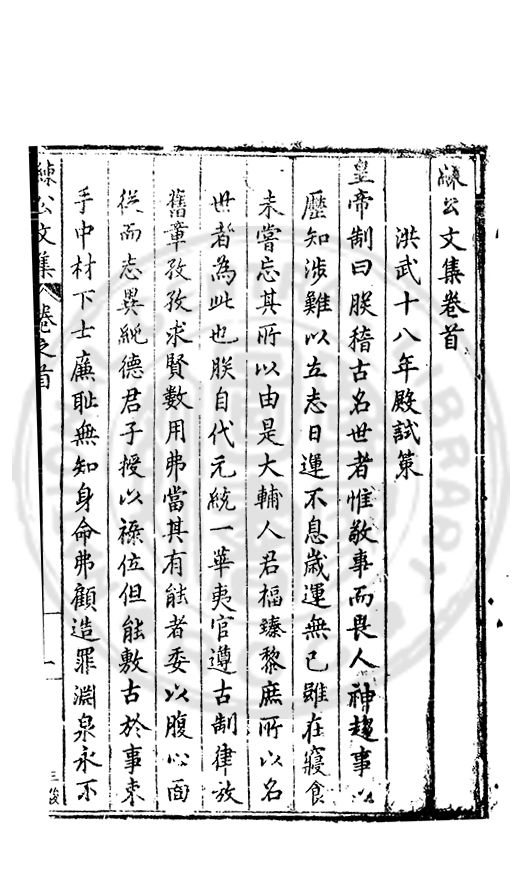 練公文集卷首
洪武十八年殿試策
皇帝制曰朕稽古名世者惟敬事而畏人神趨事以
歷知涉難以立志日運不息歲運無已雖在寢食
未嘗忘其所以由是大輔人君福臻黎庶所以名
世者為此也朕自代元統一華夷官遵古制律放
舊章孜孜求賢數用弗當其有能者委以腹心面
從而志異純德君子授以祿位但能敷古於事束
手中材下士廉恥無知身命弗顧造罪淵泉永不
練公文集 卷之首 一